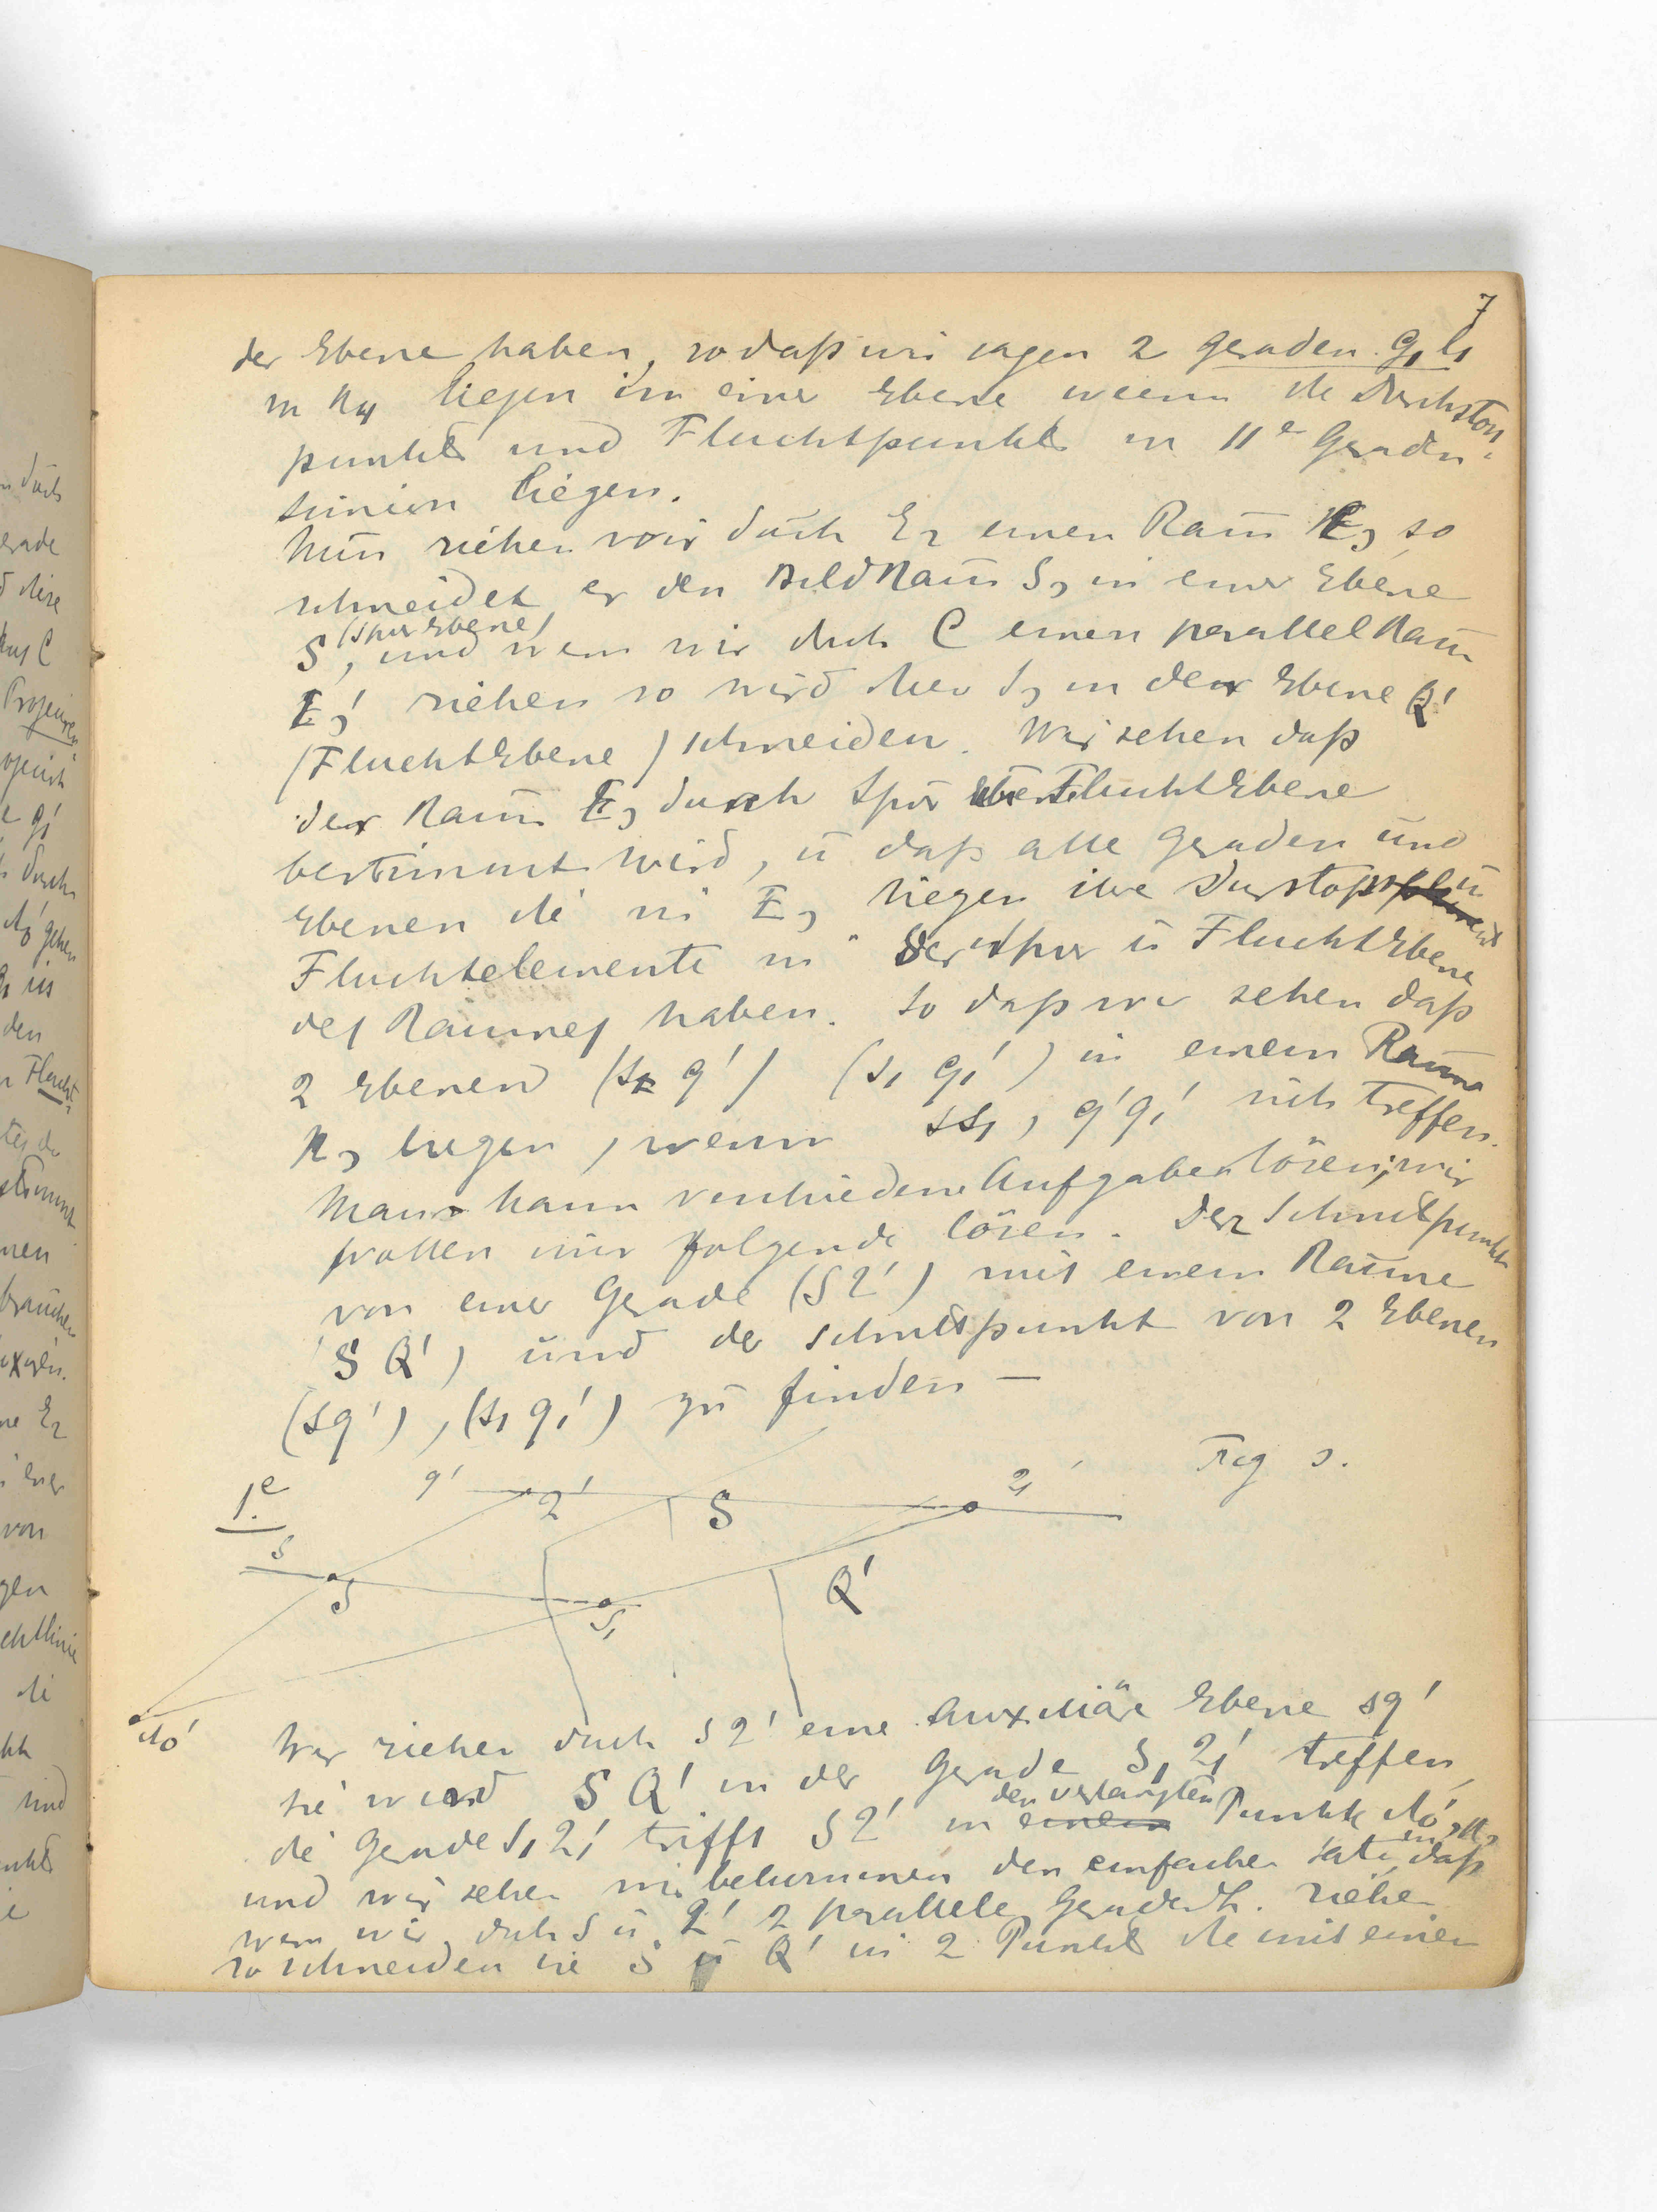 7
der Ebene haben, so daß wir sagen 2 geraden G₁ l₁
in R₄ liegen in einer Ebene wenn die Durchstoss
punkte und Fluchtpunkte in 11ᵉ Geraden
liegen.
Nun ziehen wir durch E₂ einen Raum E₃ so
schneidet er den Bildraum S₃ in einer Ebene
(Spur Ebene)
S, und wenn wir durch C einen parallel Raum
E₃' ziehen so wird dieser S₃ in der Ebene Q'
(FluchtEbene) schneiden. Wir sehen daß
der Raum E₃ durch Spur FluchtEbene
bestimmt wird, ū daß alle geraden und
Ebenen die in E₃ liegen ihre Durstoss ū
Fluchtelemente in der Spur ū FluchtEbene
des Raumes haben. So daß wir sehen daß
2 Ebenen (s q') (s₁ q₁') in einem Raume
R₃ liegen, wenn s s₁, q' q₁' sich treffen.
Man kann verschiedene Aufgaben lösen, wir
wollen nur folgende lösen. Der Schnittpunkt
von einer Gerade (S 2') mit einem Raume
(S Q') und der Schnittpunkt von 2 Ebenen
(s q'), (s₁ q₁') zu finden —
Fig 3.
1.ᵉ
q' 2' S 2₁'
s S S₁ Q'
Wir ziehen durch S 2' eine Auxiliäre Ebene s q'
sie wird S Q' in der Gerade S₁ 2₁' treffen,
den verlangten
die Gerade S₁ 2₁' trifft S 2' in einem Punkte
und wir sehen wir bekommen den einfachen Satz, daß
wenn wir durch S ū 2' 2 parallele Gerade ziehen
so schneiden sie S ū Q' in 2 Punkte die mit einer